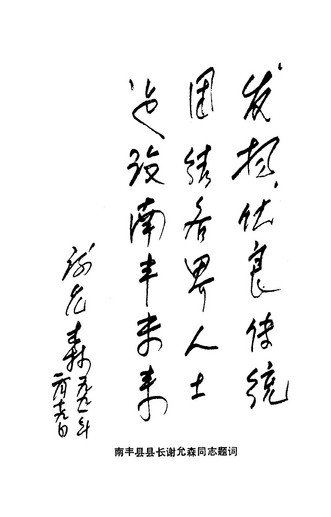 发扬优良传统
团结各界人士
建设南丰未来
谢允森
南丰县县长谢允森同志题词